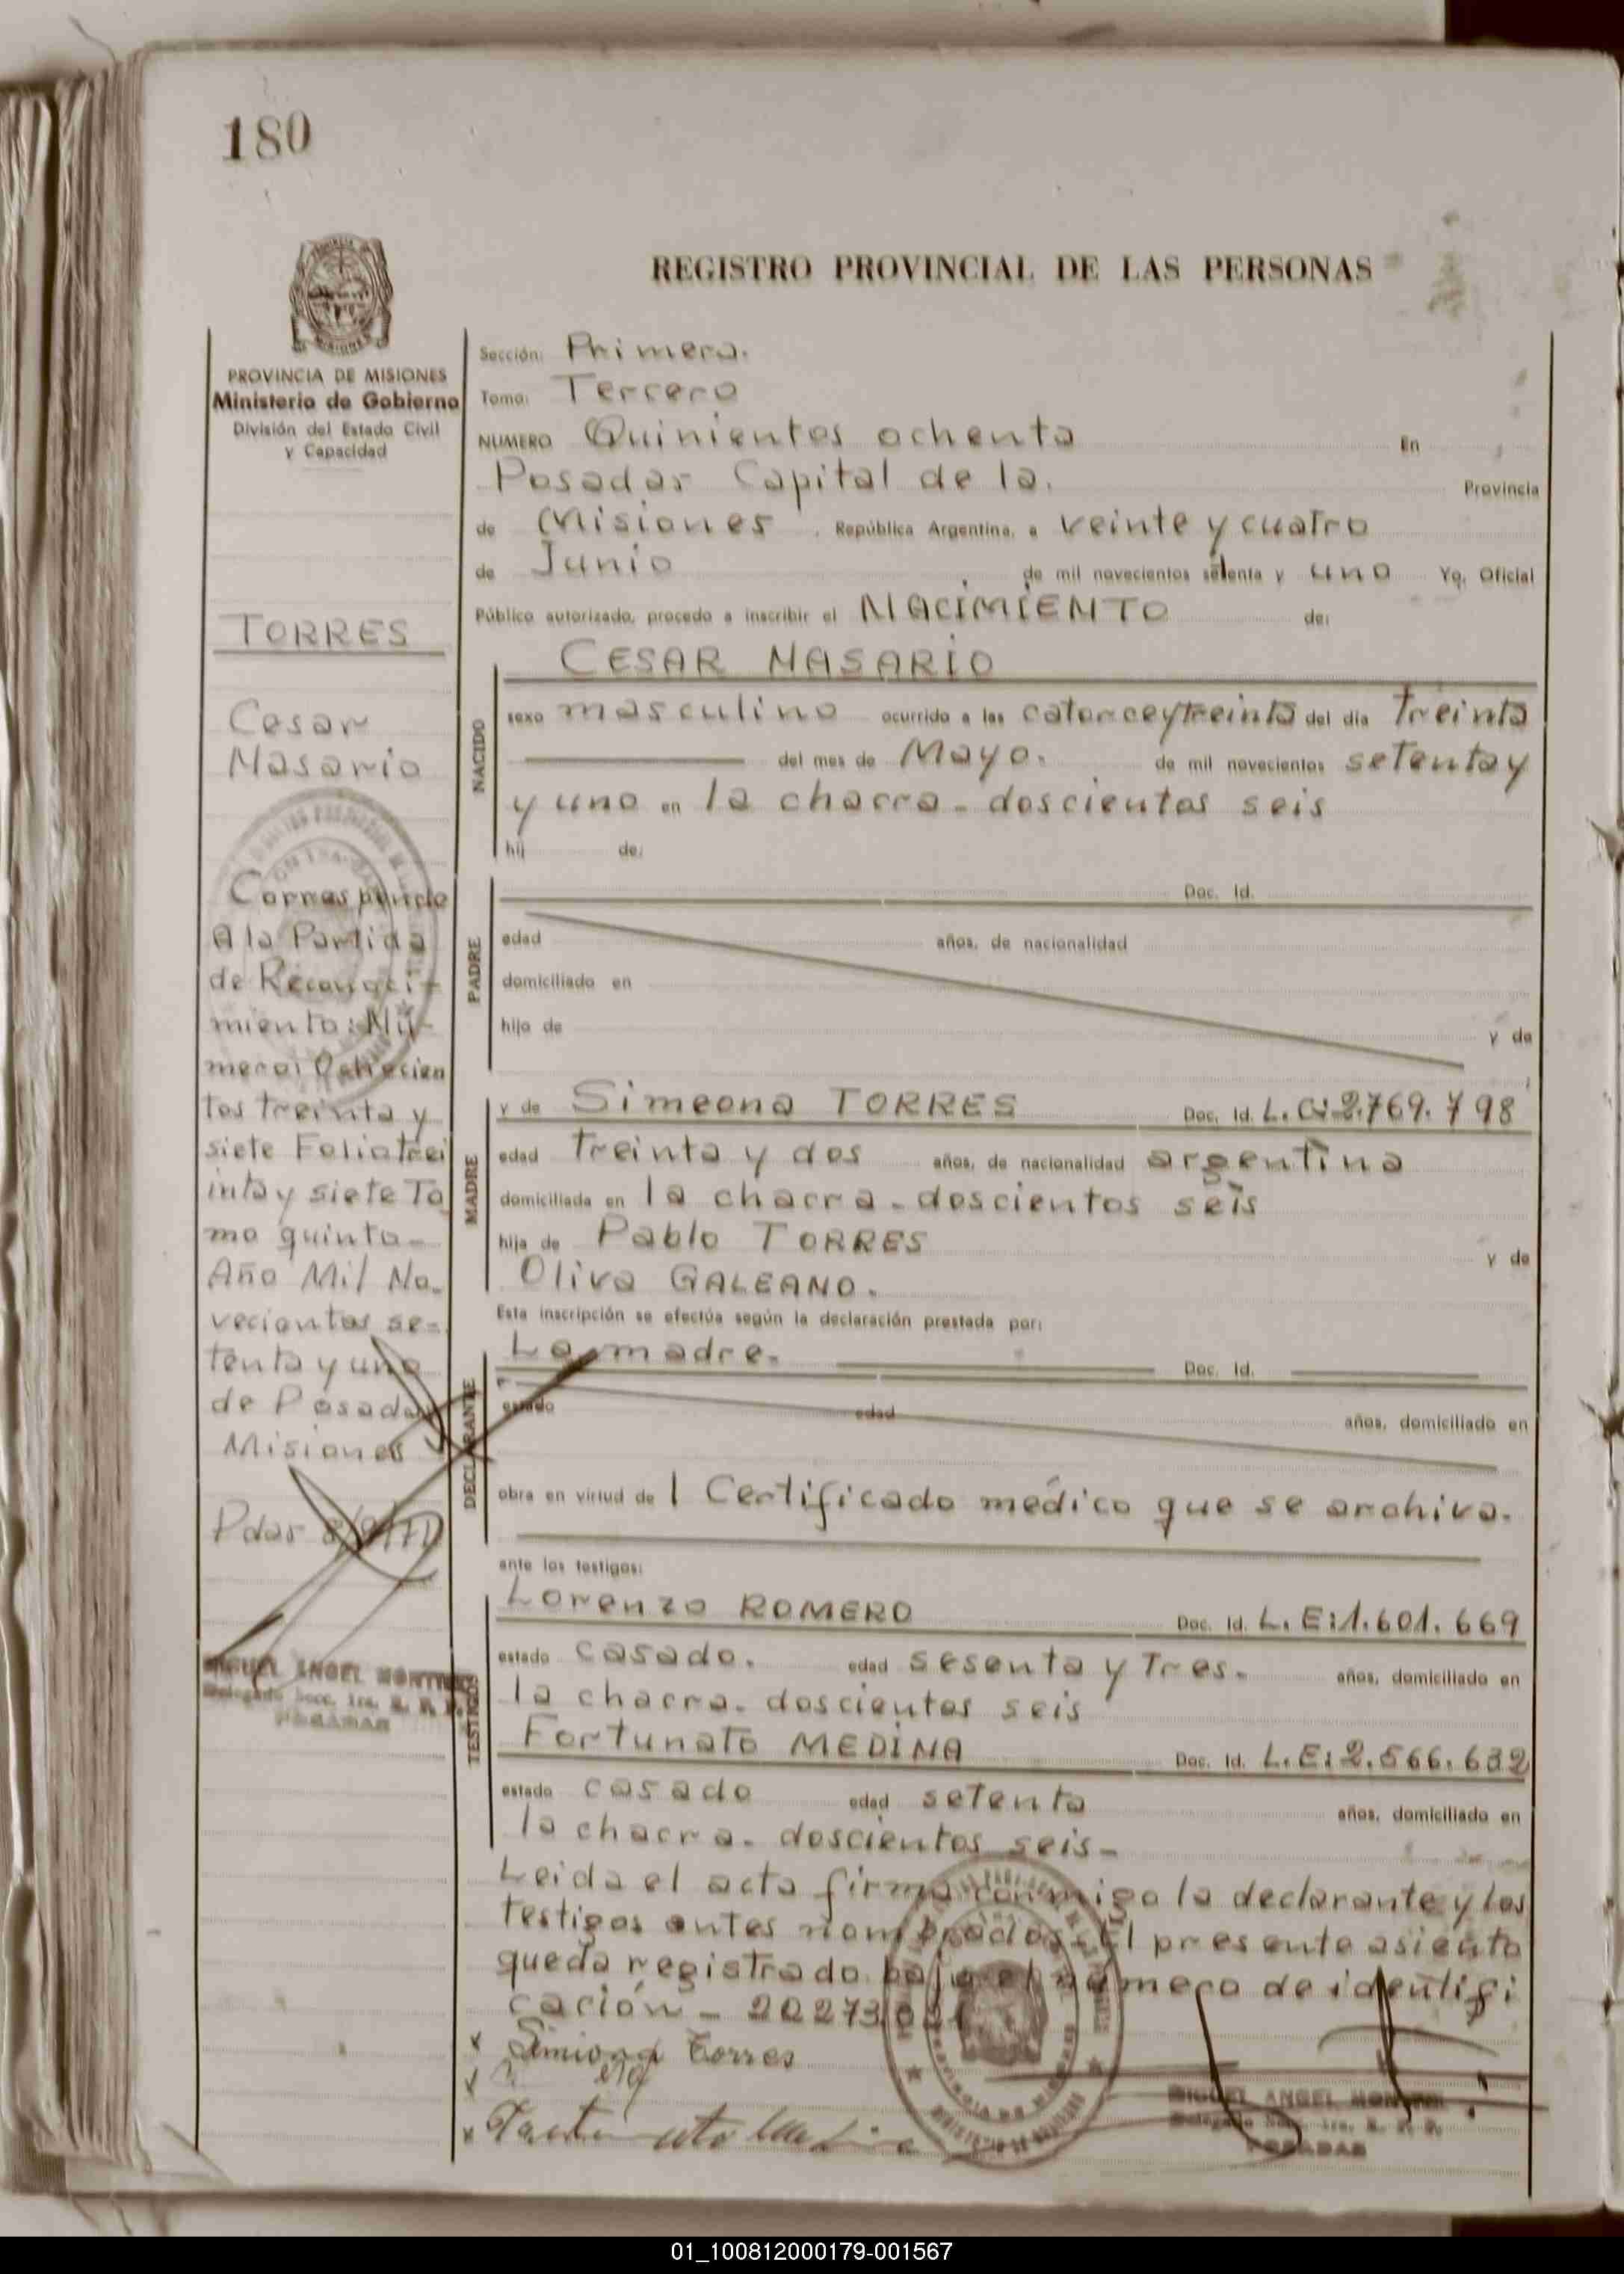 180
REGISTRO PROVINCIAL DE LAS PERSONAS
PROVINCIA DE MISIONES
Ministerio de Gobierno
División del Estado Civil
y Capacidad
TORRES
Cesar
Nasario
Corresponde
A la Partida
de Reconoci-
miento: Nú-
mero: Ochocien
tos treinta y
siete Folio trei
inta y siete To
mo quinto-
Año Mil No-
vecientos se-
tenta y uno
de Posadas
Misiones
Pdas
MIGUEL ANGEL
Delegado Secc. 1ra. R. P. P.
POSADAS
Sección: Primera.
Tomo: Tercero
NUMERO Quinientos ochenta En
Posadas Capital de la. Provincia
de Misiones , República Argentina, a veinte y cuatro
de Junio de mil novecientos setenta y uno Yo, Oficial
Público autorizado, procedo a inscribir el NACIMIENTO de:
CESAR NASARIO
NACIDO
sexo masculino ocurrido a las catorce y treinta del día treinta
del mes de Mayo. de mil novecientos setenta y
y uno en la chacra - doscientos seis
hij de:
PADRE
Doc. Id.
edad años, de nacionalidad
domiciliado en
hijo de y de
MADRE
y de Simeona TORRES Doc. Id. L. C: 2.769.798
edad treinta y dos años, de nacionalidad argentina
domiciliada en la chacra - doscientos seis
hija de Pablo TORRES y de
Oliva GALEANO.
Esta inscripción se efectúa según la declaración prestada por:
DECLARANTE
La madre. Doc. Id.
estado edad años, domiciliado en
obra en virtud de 1 Certificado médico que se archiva.
ante los testigos:
TESTIGOS
Lorenzo ROMERO Doc. Id. L. E: 1.601.669
estado casado. edad sesenta y tres. años, domiciliado en
la chacra - doscientos seis
Fortunato MEDINA Doc. Id. L. E: 2.566.632
estado casado edad setenta años, domiciliado en
la chacra - doscientos seis-
Leida el acta firma conmigo la declarante y los
testigos antes nombrados - El presente asiento
queda registrado bajo el número de identifi
cación -
x Simiona Torres
x
x
MIGUEL ANGEL
Delegado Secc. 1ra. R. P. P.
POSADAS
01_100812000179-001567